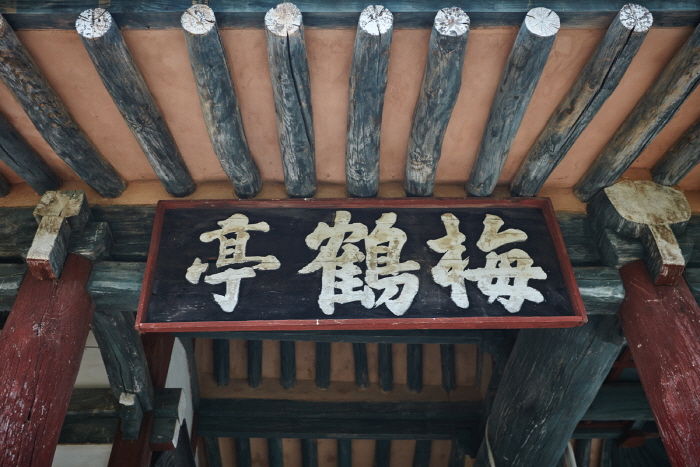 梅鶴亭